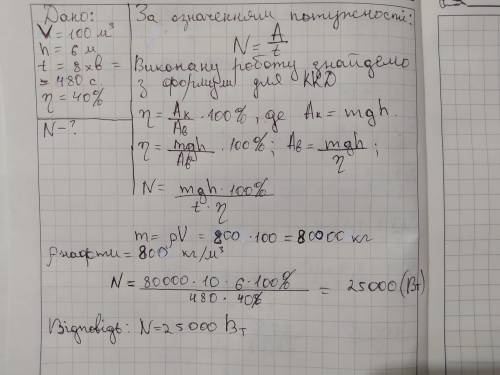 Дано:
V = 100 м³
h = 6 м
t = 8 хв =
= 480 с
η = 40%
N - ?
За означенням потужності:
N = A/t
Виконану роботу знайдемо
з формули для ККД
η = Aк/Aв · 100%, де Aк = mgh.
η = mgh/Aв · 100%; Aв = mgh/η;
N = mgh · 100%/t · η
m = ρV = 800 · 100 = 80000 кг
ρ нафти = 800 кг/м³
N = 80000 · 10 · 6 · 100%/480 · 40% = 25000 (Вт)
Відповідь: N = 25000 Вт